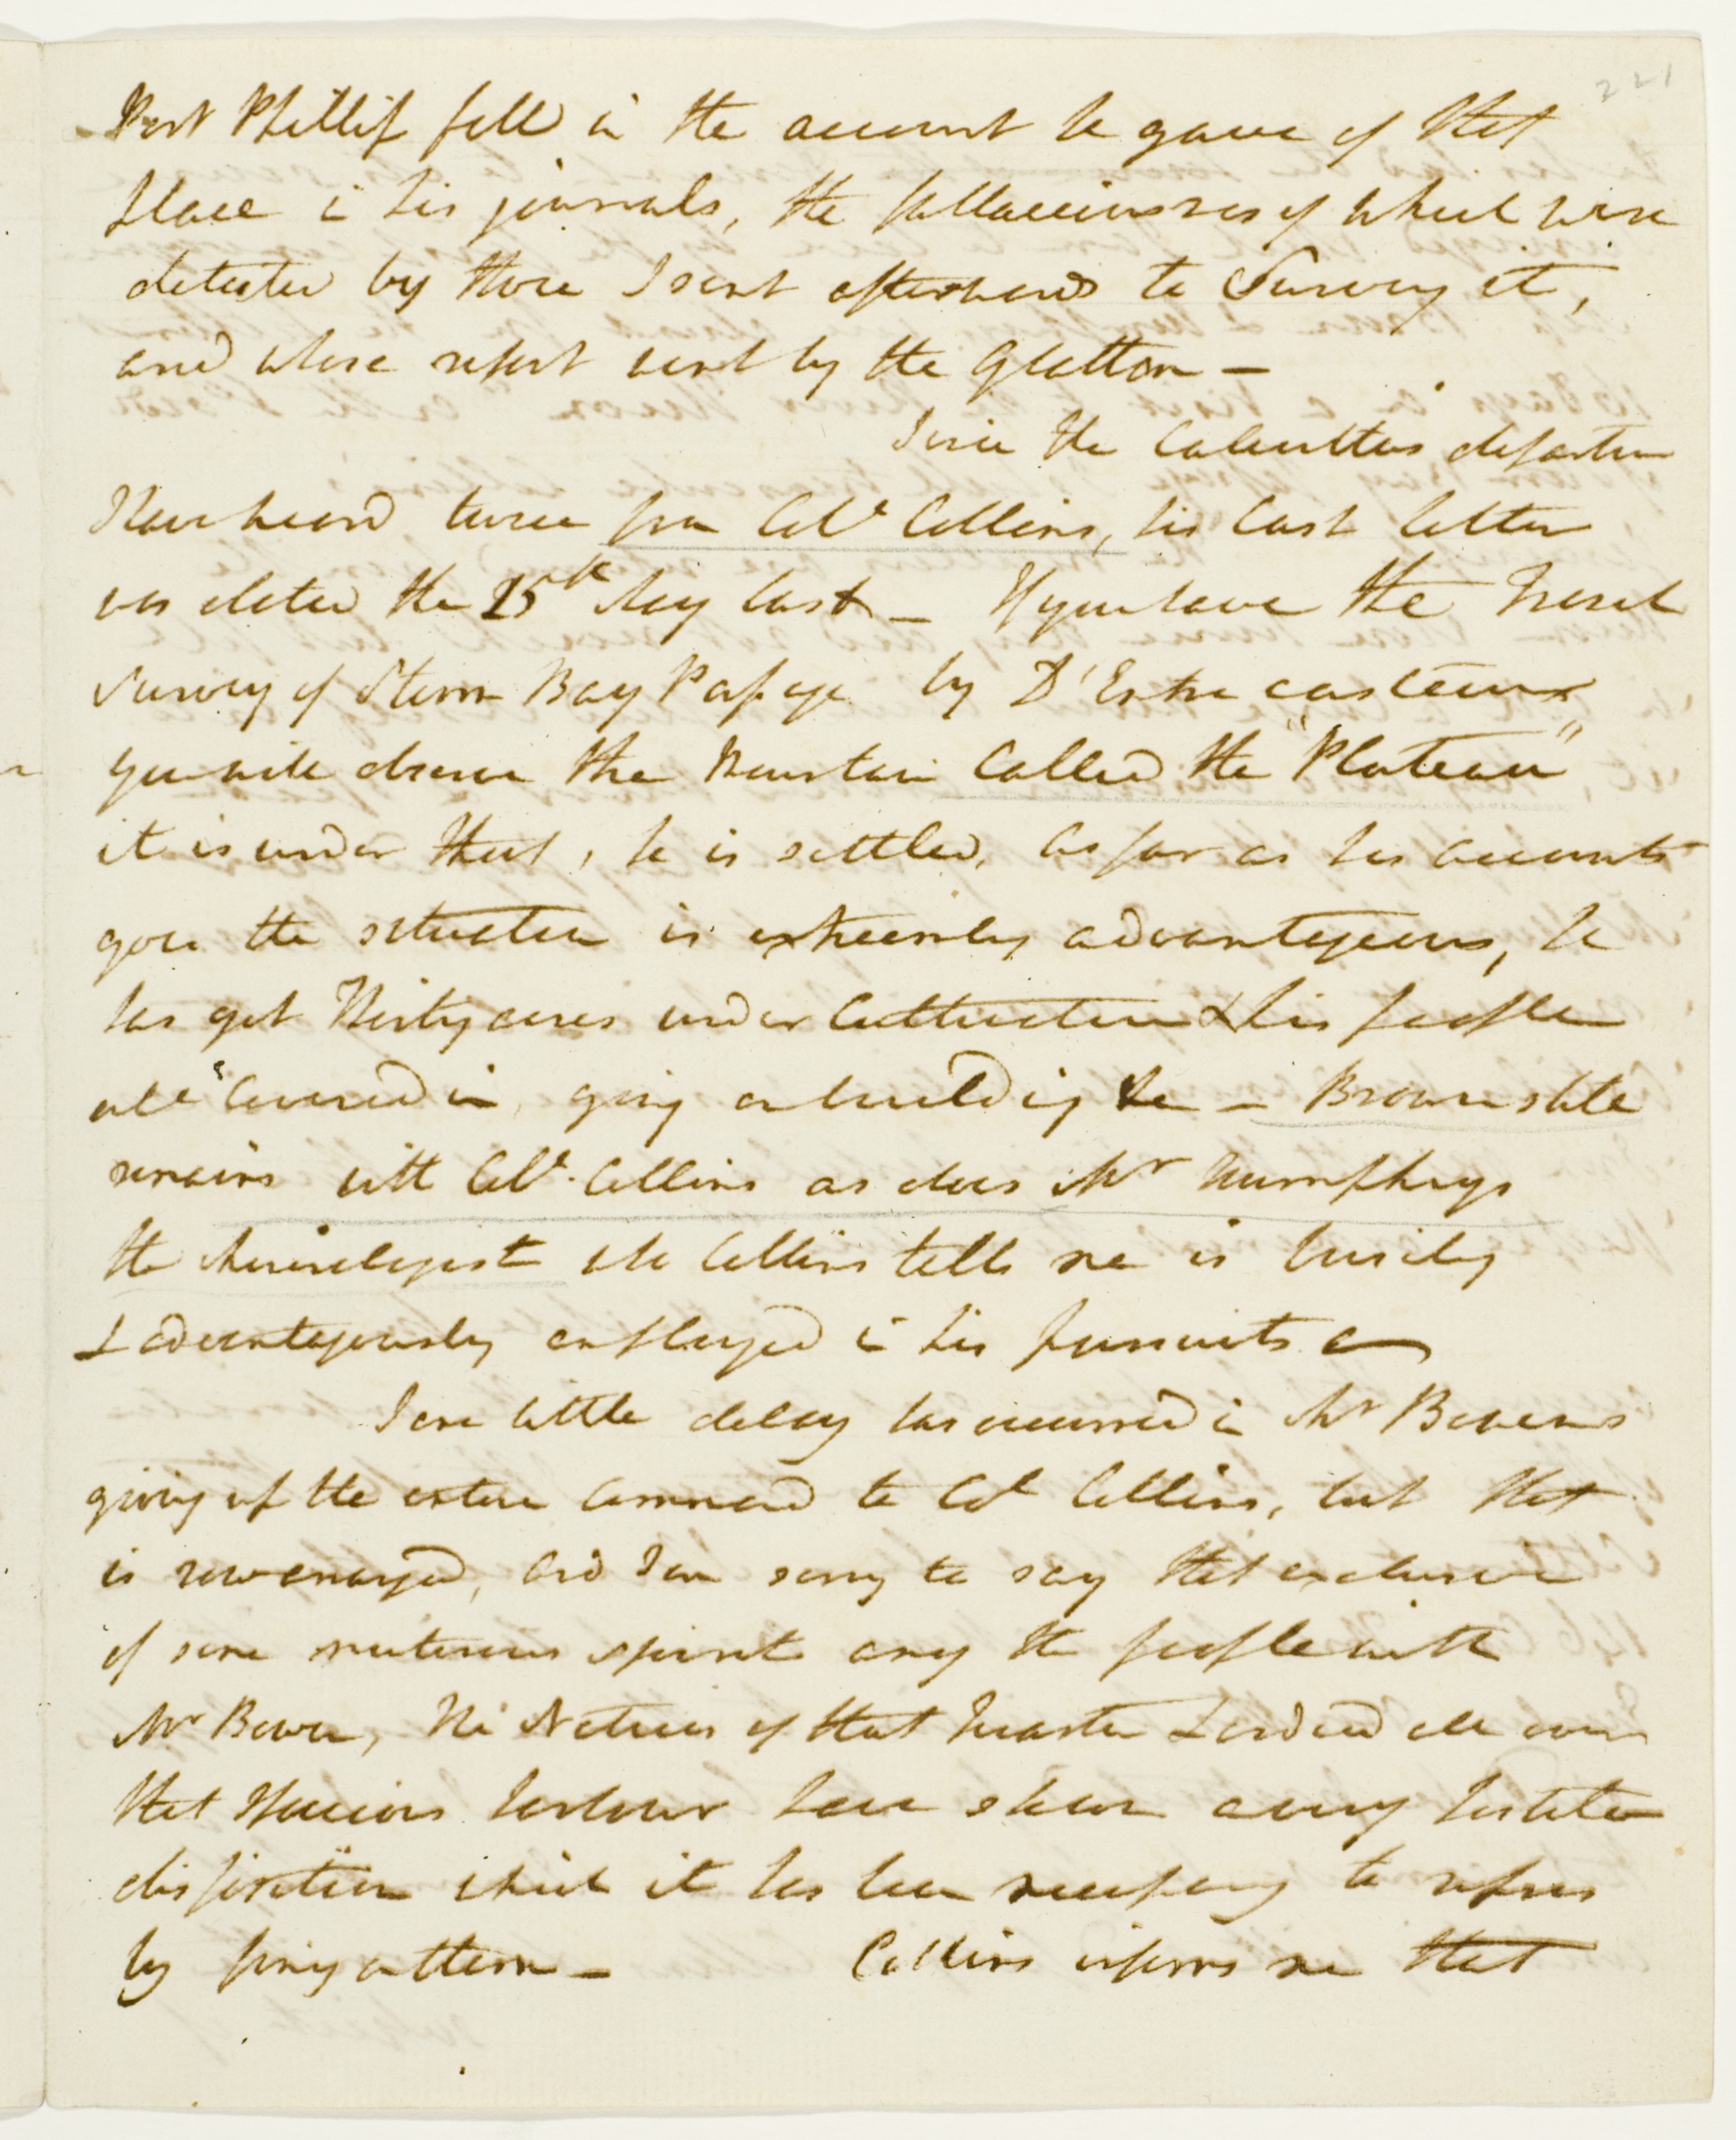 221
Port Phillip fell in the account he gave of that
place in his journals, the fallaciousness of which were
detected by those I sent afterwards to Survey it,
and whose report went by the Glatton —
Since the Calcuttas departure
I have heard twice from Coll Collins, his last letter
was dated the 15th May last — If you have the French
Survey of Storm Bay Passage by D'Entrecasteaux
you will observe the Mountain Called the "Plateau"
it is under that, he is settled, as far as his accounts
goes the situation is extreemly advantageous, he
has got thirty acres under Cultivation & his people
all Covered in, going on building &c — Brown still
remains with Coll. Collins as does Mr Humphreys
the Mineralogist who Collins tells me is busily
& advantageously employed in his pursuits
Some little delay has occurred in Mr Bowens
giving up the entire Command to Col Collins, but that
is now arranged, and I am sorry to say that exclusive
of some mutinous spirits among the people with
Mr Bowen, the Natives of that quarter & indeed all over
that spacious harbour have shewn a very hostile
disposition which it has been necessary to repress
by firing at them — Collins informs me that